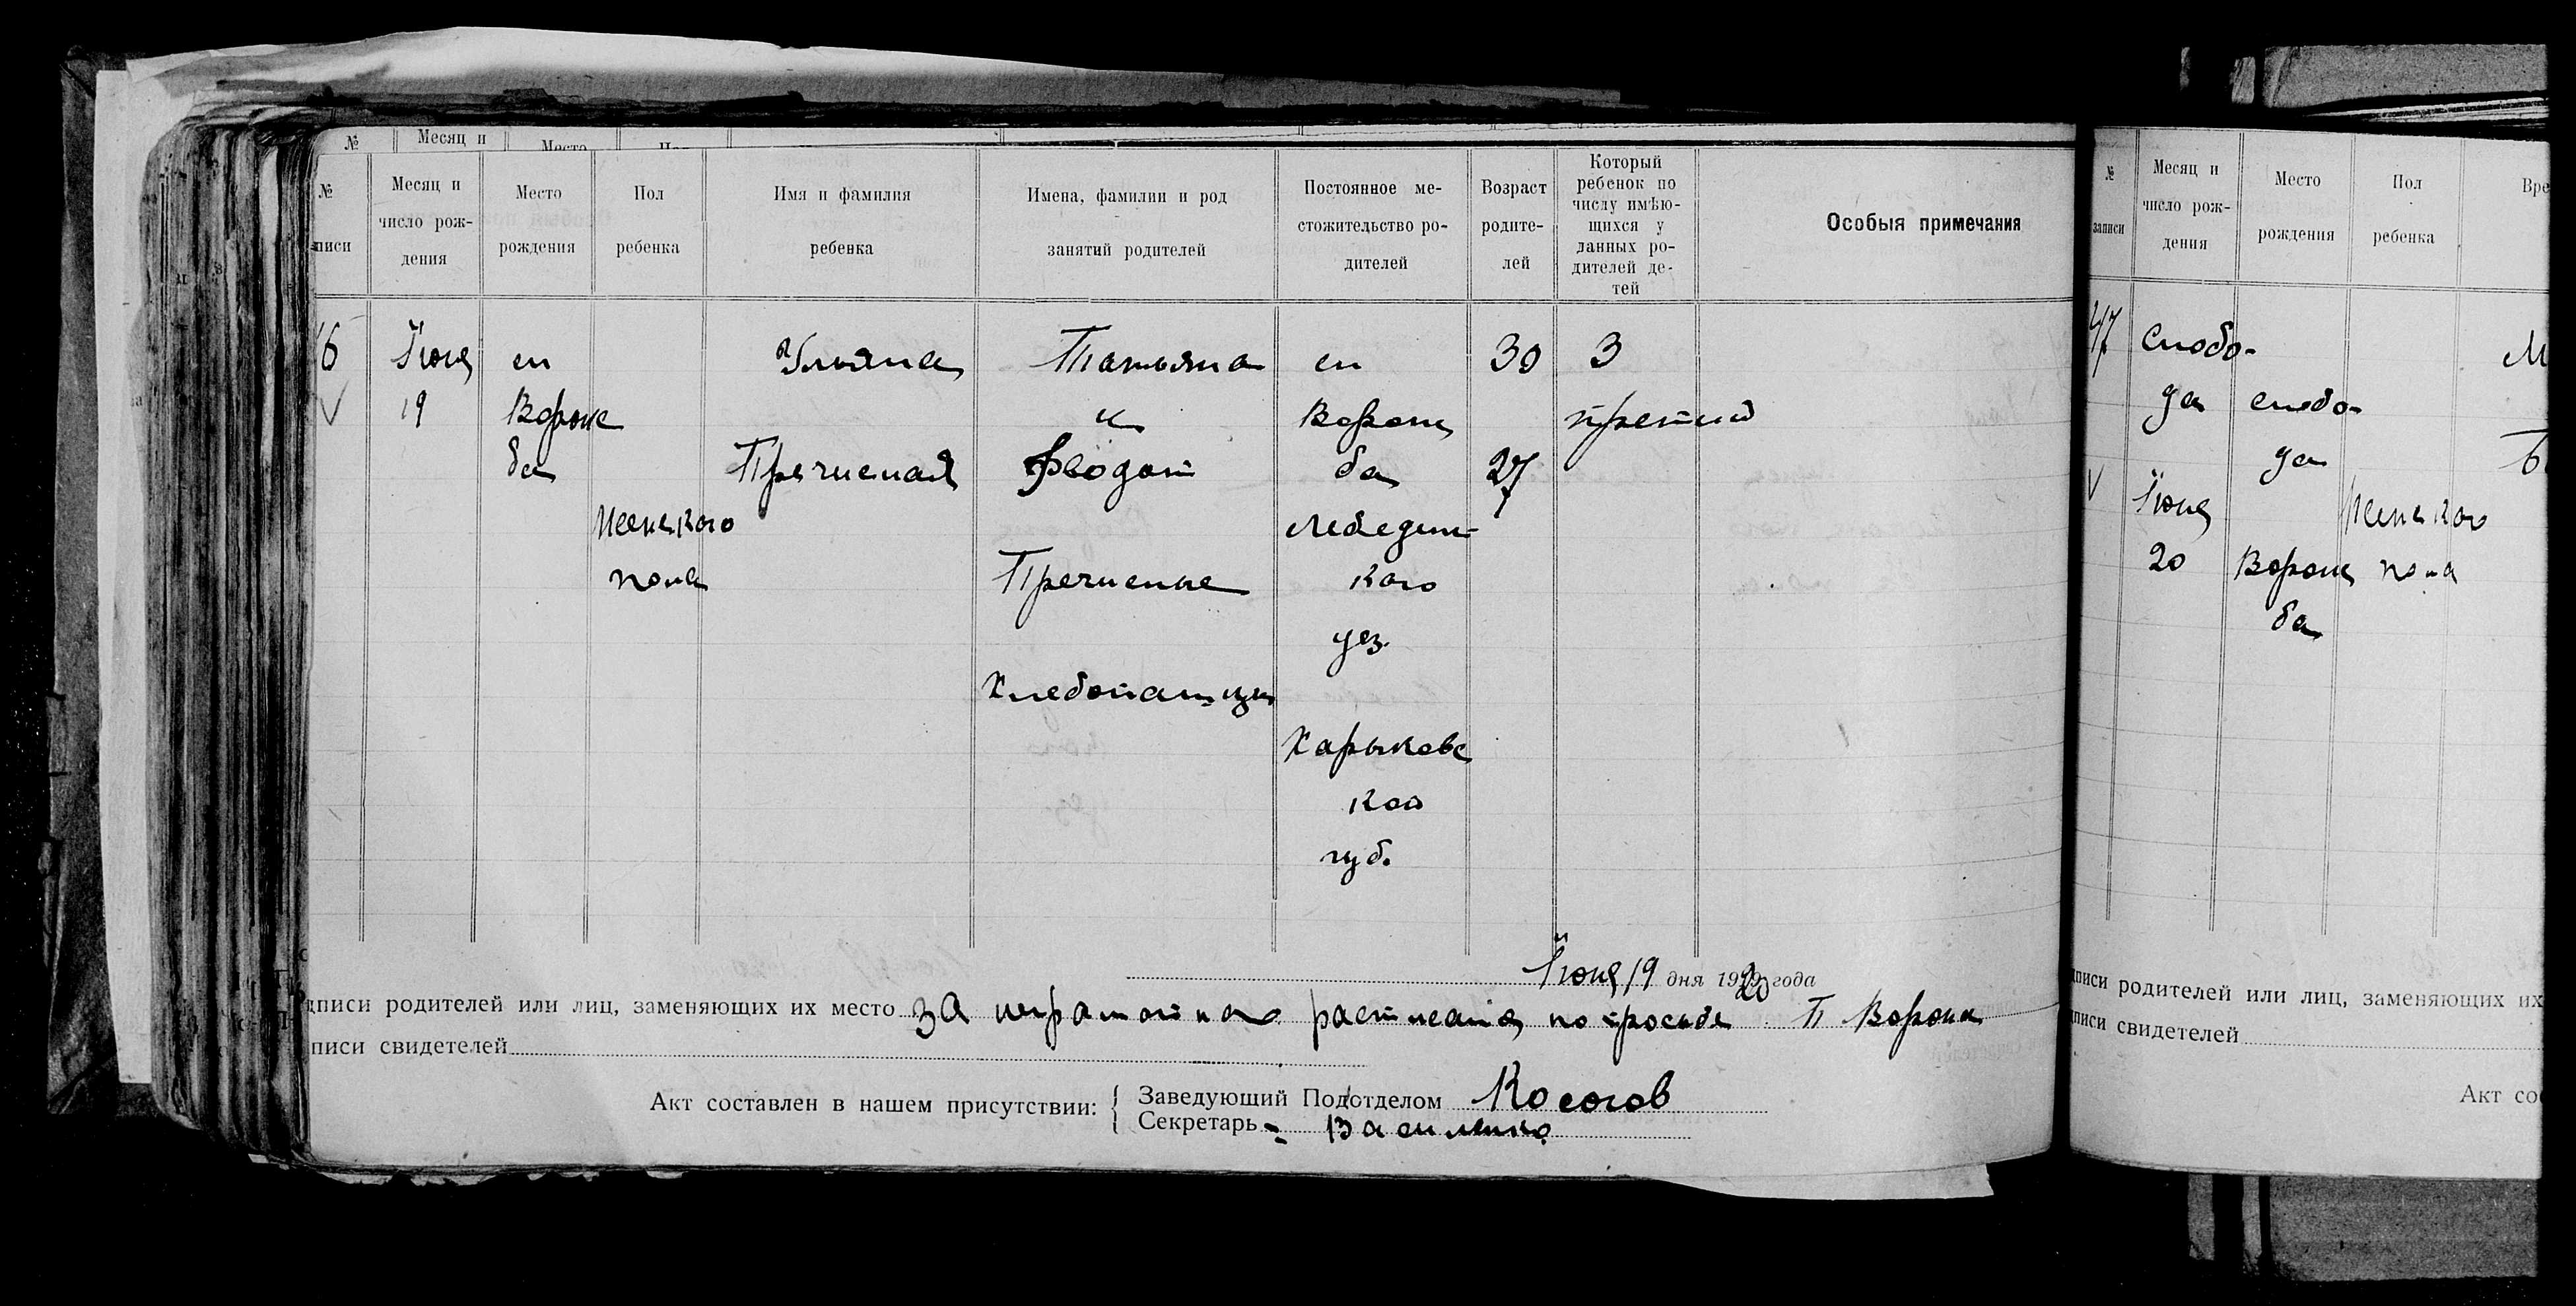 № Месяц и Место Пол
№ писи
Месяц и число рож- дения
Место рождения
Пол ребенка
Имя и фамилия ребенка
Имена, фамилии и род занятий родителей
Постоянное ме- стожительство ро- дителей
Возраст родите- лей
Который ребенок по числу имѣю- щихся у данных ро- дителей де- тей
Особыя примечания
6 Іюня сл Ульяна Татьяна сл 30 3
19 Ворож и Ворож третий
ба Пречисная Феодот ба 27
женского Лебедин-
пола Пречисные кого
уез.
Хлебопашцы
Харьковс
кой
губ.
Іюня 19 дня 1920 года
дписи родителей или лиц, заменяющих их место за неграмотных расписался по просьбе П Ворона
писи свидетелей
Акт составлен в нашем присутствии:
Заведующий Подотделом Косогов
Секретарь Василенко
№ записи
Месяц и число рож- дения
Место рождения
Пол ребенка
Вре
47 Слобо-
да слобо-
да
Іюня женского
20 Ворож пола
ба
писи родителей или лиц, заменяющих их
писи свидетелей
Акт со